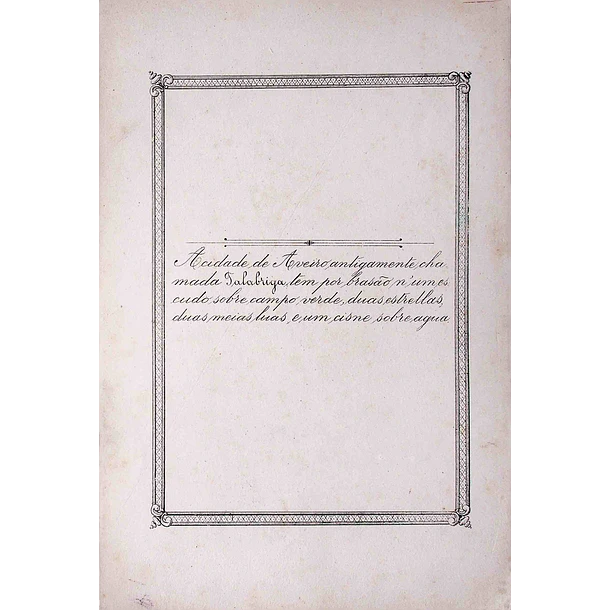 A cidade de Aveiro, antigamente, cha-
mada Talabriga, tem por brasão, n'um es-
cudo, sobre campo verde, duas estrellas,
duas meias luas, e um cisne sobre agua